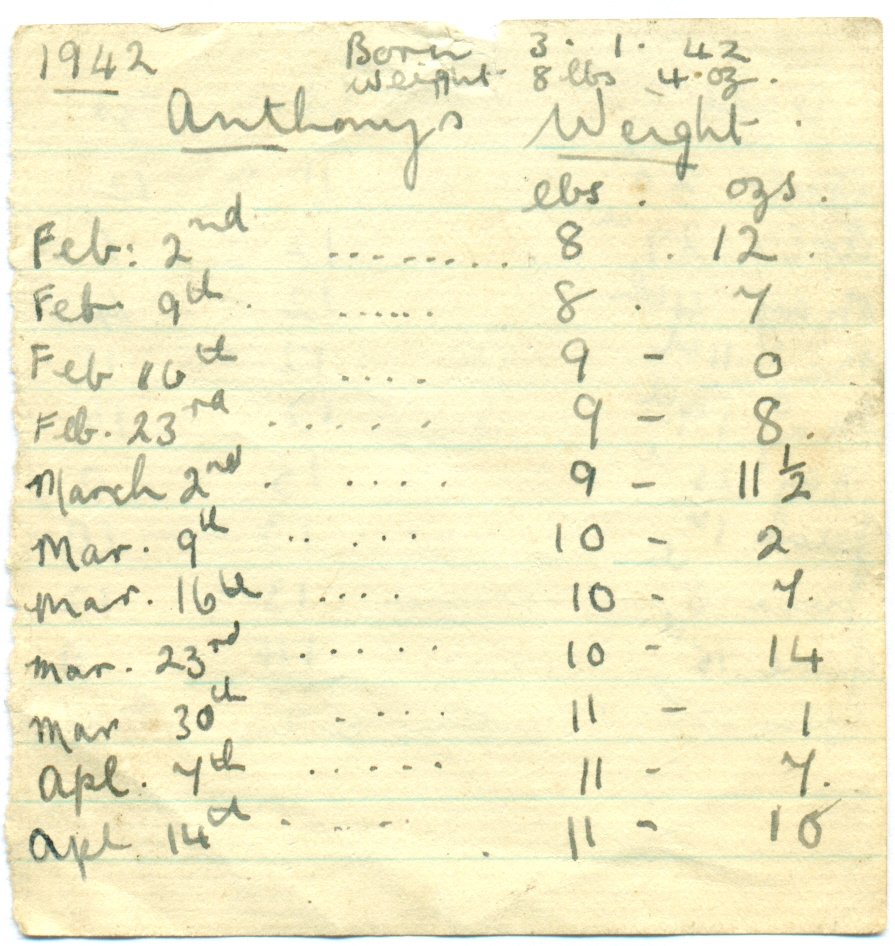 1942 Born 3. 1. 42
Weight 8 lbs 4 oz.
Anthonys Weight.
lbs. ozs.
Feb: 2nd ......... 8 . 12.
Feb. 9th ...... 8 . 7
Feb 16th .... 9 - 0
Feb. 23rd ...... 9 - 8.
March 2nd . ..... 9 - 11 1/2
Mar. 9th ..... 10 - 2
Mar. 16th .... 10 - 7.
Mar. 23rd ...... 10 - 14
Mar 30th .... 11 - 1
Apl. 7th ..... 11 - 7.
Apl 14th ..... 11 - 10